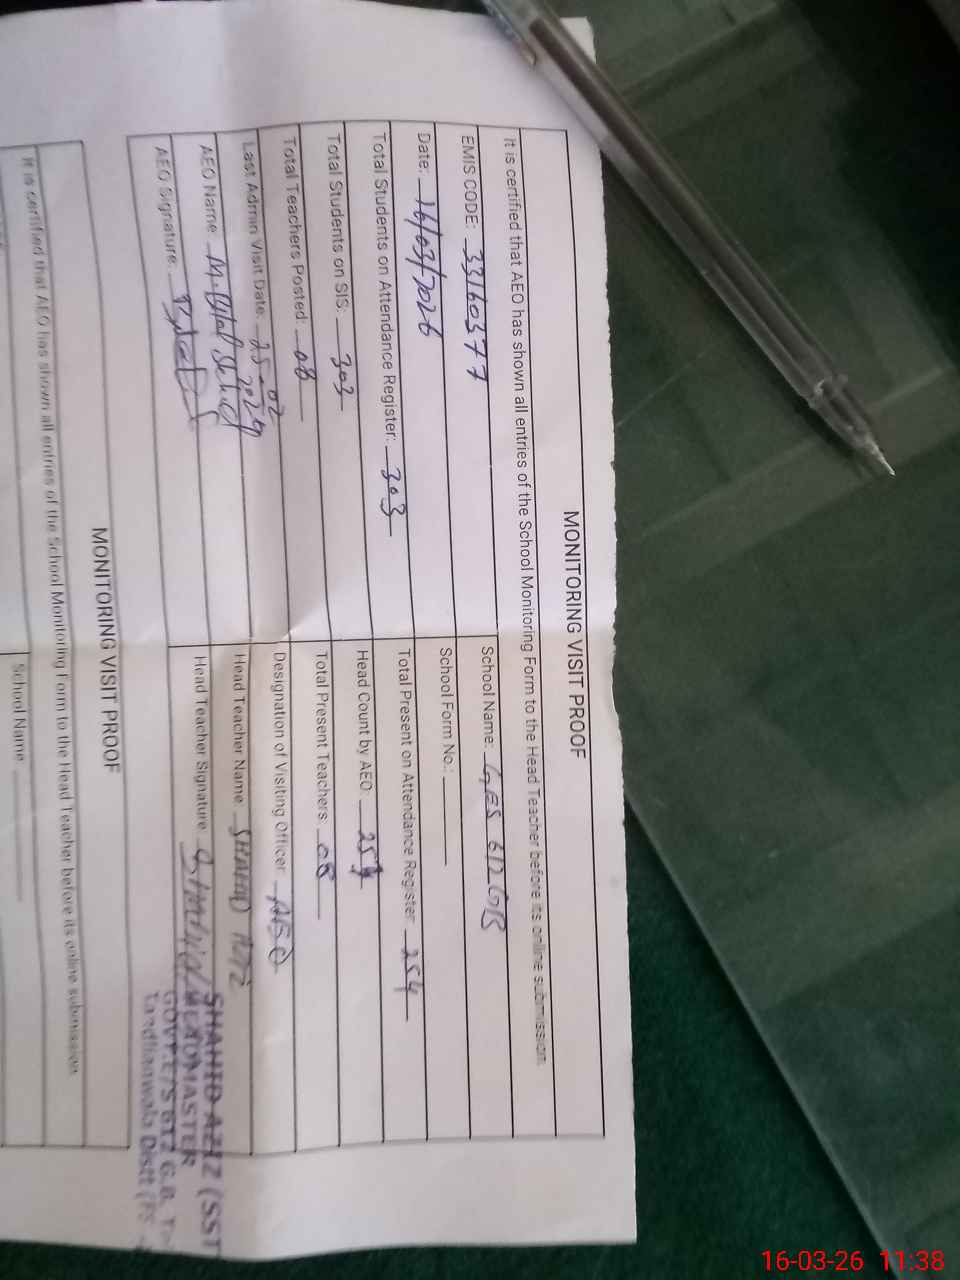 MONITORING VISIT PROOF
It is certified that AEO has shown all entries of the School Monitoring Form to the Head Teacher before its online submission.
EMIS CODE: 33160377 School Name: GES 612 GB
Date: 16/03/2026 School Form No.:
Total Students on Attendance Register: 303 Total Present on Attendance Register 254
Total Students on SIS: 303 Head Count by AEO: 254
Total Teachers Posted: 08 Total Present Teachers: 08
Last Admin Visit Date: 25-02 Designation of Visiting Officer: AEO
AEO Name: M. Head Teacher Name: SHAHID AZIZ
AEO Signature: Head Teacher Signature:
SHAHID AZIZ (SST
HEADMASTER
GOVT.E/S 612 G.B.
Tandlianwala Distt (FS
MONITORING VISIT PROOF
It is certified that AEO has shown all entries of the School Monitoring Form to the Head Teacher before its online submission.
School Name:
16-03-26 11:38